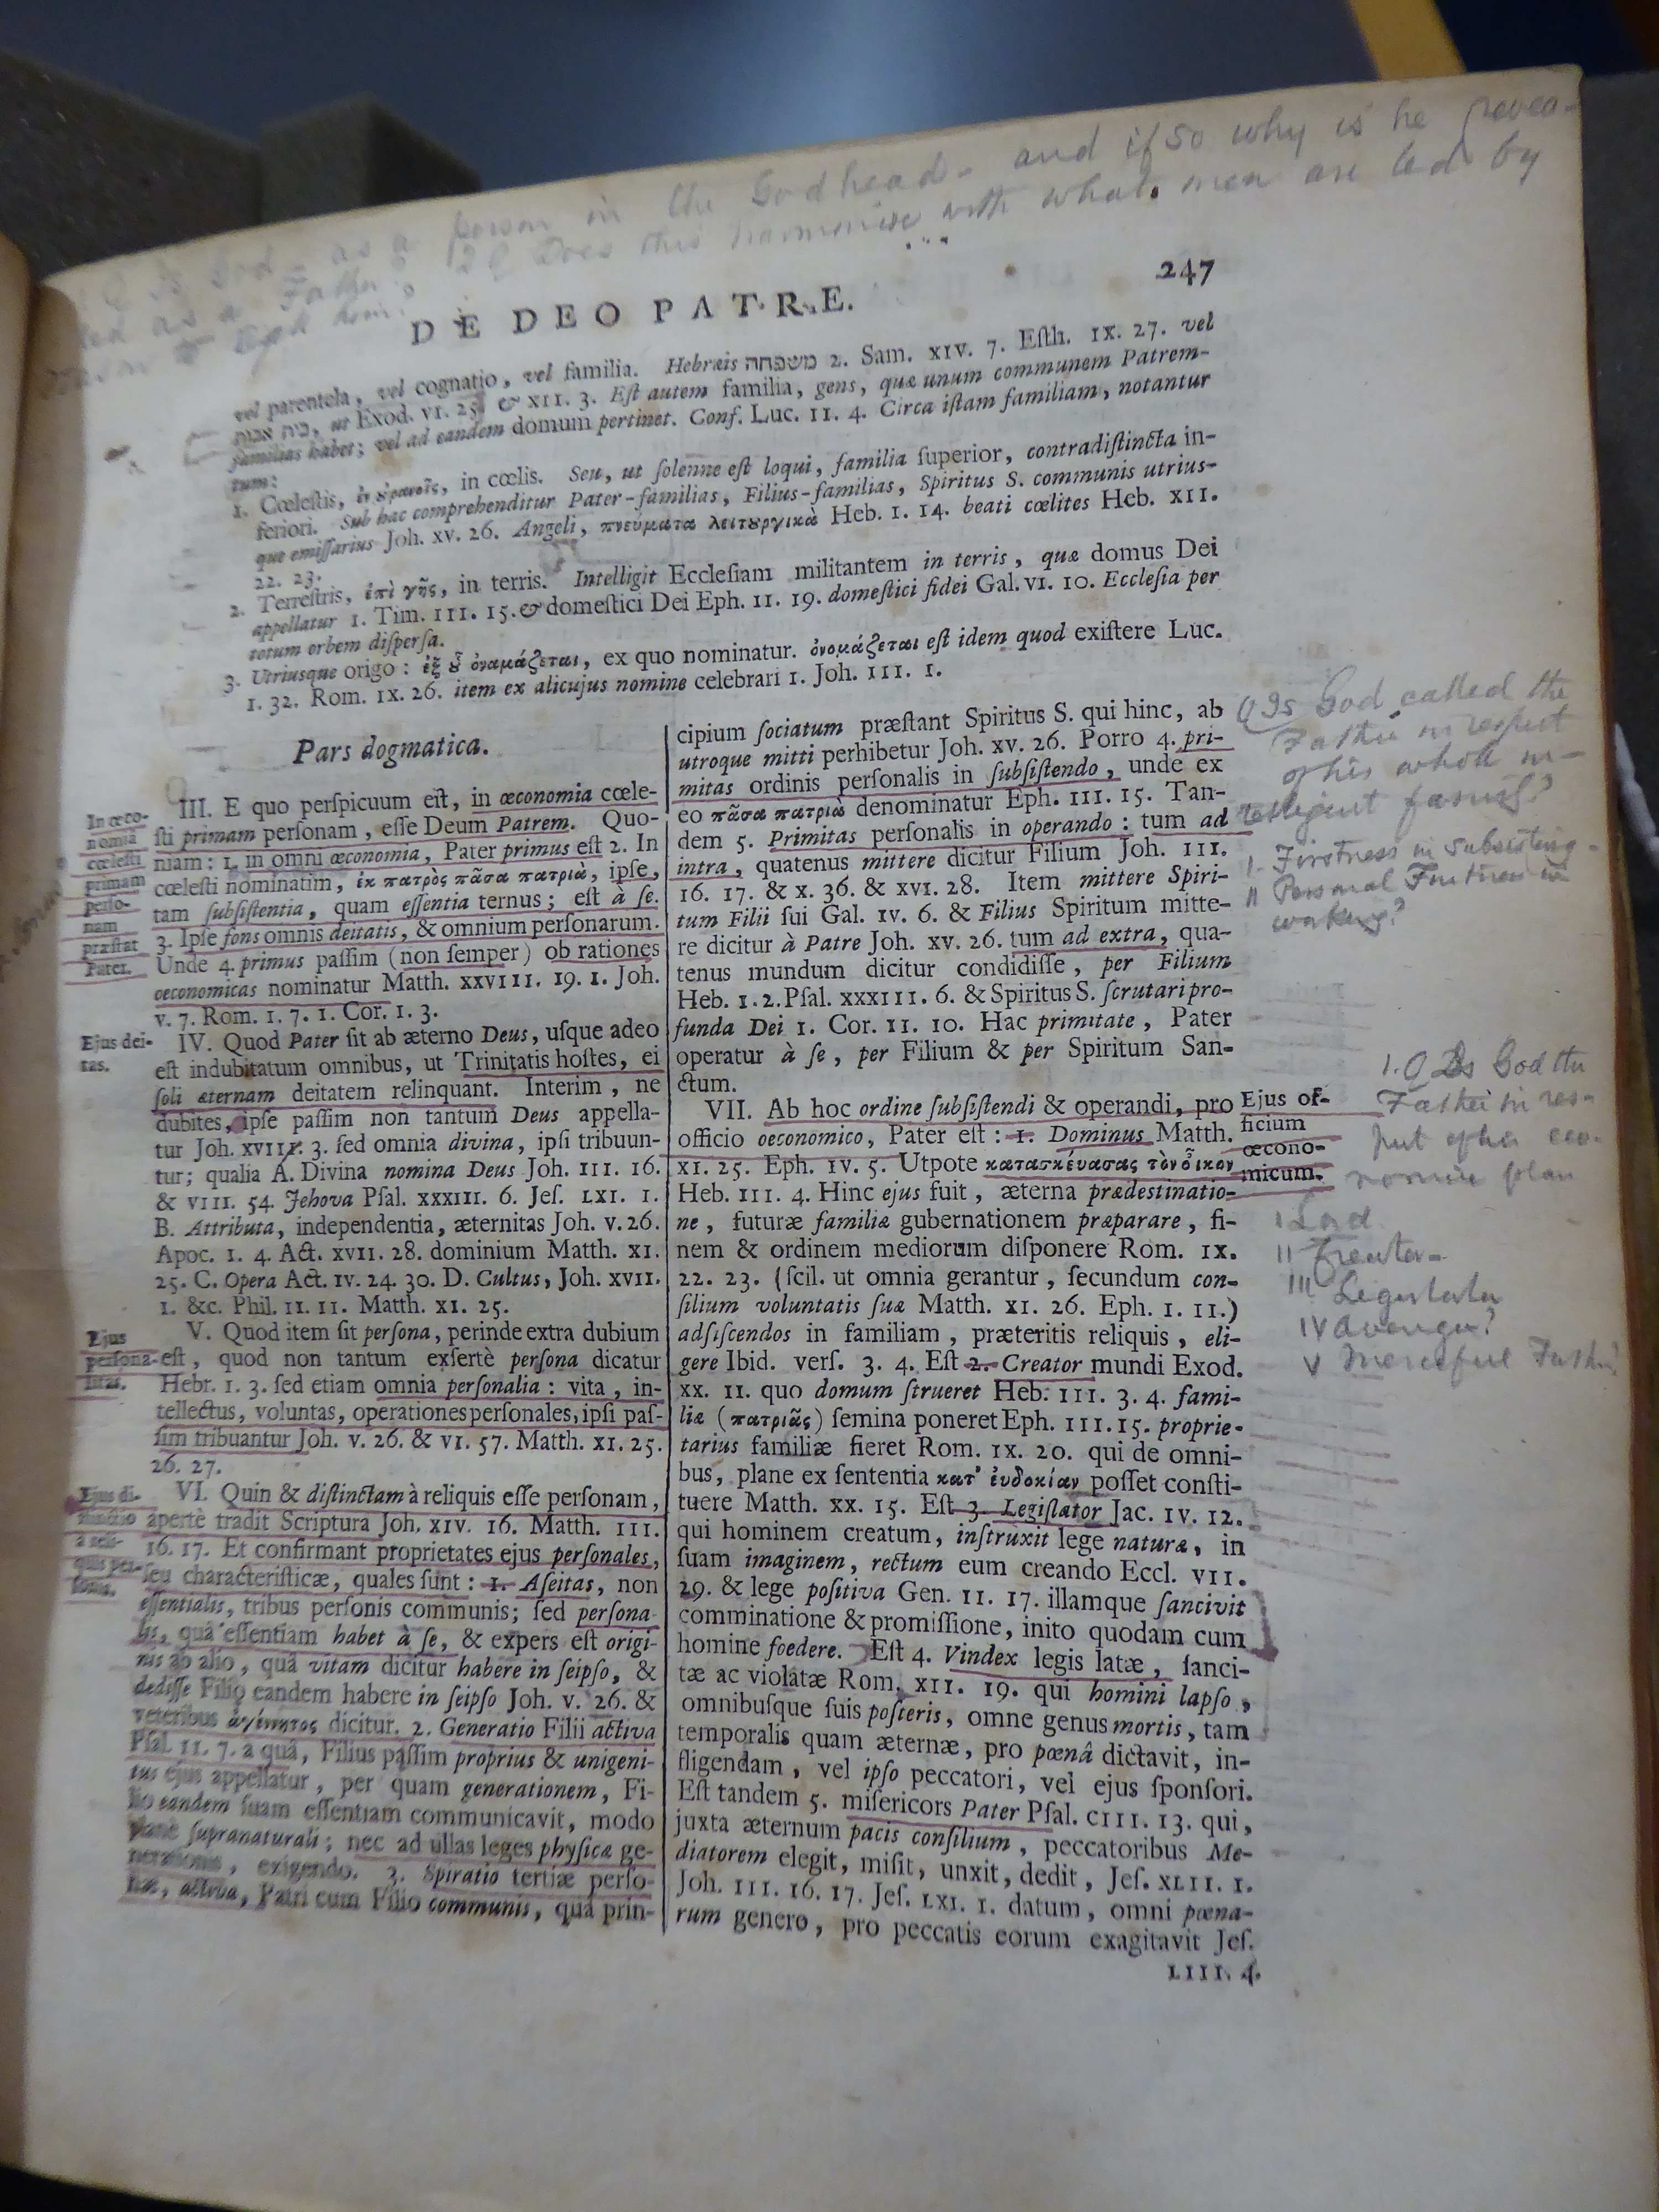 Q Is God - as a person in the Godhead - and if so why is he revea-
led as a Father? 2 Q Does this harmonise with what men are led by
reason to expect him?
247
DE DEO PATRE.
vel parentela, vel cognatio, vel familia. Hebræis משפחה 2. Sam. XIV. 7. Eſth. IX. 27. vel
בית אבות, ut Exod. VI. 25. & XII. 3. Eſt autem familia, gens, quæ unum communem Patrem-
familias habet; vel ad eandem domum pertinet. Conf. Luc. II. 4. Circa iſtam familiam, notantur
tum:
1. Cœleſtis, ἐν ὐρανοῖς, in cœlis. Seu, ut ſolenne eſt loqui, familia ſuperior, contradiſtincta in-
feriori. Sub hac comprehenditur Pater-familias, Filius-familias, Spiritus S. communis utrius-
que emiſſarius Joh. XV. 26. Angeli, πνεύματα λειτȣργικὰ Heb. I. 14. beati cœlites Heb. XII.
22. 23.
2. Terreſtris, ἐπὶ γῆς, in terris. Intelligit Eccleſiam militantem in terris, quæ domus Dei
appellatur 1. Tim. III. 15. & domeſtici Dei Eph. II. 19. domeſtici fidei Gal. VI. 10. Eccleſia per
totum orbem diſperſa.
3. Utriusque origo: ἐξ ȣ̃ ὀναμάζεται, ex quo nominatur. ὀνομάζεται eſt idem quod exiſtere Luc.
I. 32. Rom. IX. 26. item ex alicujus nomine celebrari 1. Joh. III. 1.
Pars dogmatica.
In œco-
nomia
cœleſti
primam
perſo-
nam
præſtat
Pater.
III. E quo perſpicuum eſt, in œconomia cœle-
ſti primam perſonam, eſſe Deum Patrem. Quo-
niam: 1. in omni œconomia, Pater primus eſt 2. In
cœleſti nominatim, ἐκ πατρὸς πᾶσα πατριὰ, ipſe,
tam ſubſiſtentia, quam eſſentia ternus; eſt à ſe.
3. Ipſe fons omnis deitatis, & omnium perſonarum.
Unde 4. primus paſſim (non ſemper) ob rationes
œconomicas nominatur Matth. XXVIII. 19. 1. Joh.
V. 7. Rom. I. 7. 1. Cor. I. 3.
Ejus dei-
tas.
IV. Quod Pater ſit ab æterno Deus, uſque adeo
eſt indubitatum omnibus, ut Trinitatis hoſtes, ei
ſoli æternam deitatem relinquant. Interim, ne
dubites, ipſe paſſim non tantum Deus appella-
tur Joh. XVII. 3. ſed omnia divina, ipſi tribuun-
tur; qualia A. Divina nomina Deus Joh. III. 16.
& VIII. 54. Jehova Pſal. XXXIII. 6. Jeſ. LXI. 1.
B. Attributa, independentia, æternitas Joh. V. 26.
Apoc. I. 4. Act. XVII. 28. dominium Matth. XI.
25. C. Opera Act. IV. 24. 30. D. Cultus, Joh. XVII.
1. &c. Phil. II. 11. Matth. XI. 25.
Ejus
perſona-
litas.
V. Quod item ſit perſona, perinde extra dubium
eſt, quod non tantum exſertè perſona dicatur
Hebr. I. 3. ſed etiam omnia perſonalia: vita, in-
tellectus, voluntas, operationes perſonales, ipſi paſ-
ſim tribuantur Joh. V. 26. & VI. 57. Matth. XI. 25.
26. 27.
Ejus di-
ſtinctio
a reli-
quis per-
ſonis.
VI. Quin & diſtinctam à reliquis eſſe perſonam,
apertè tradit Scriptura Joh. XIV. 16. Matth. III.
16. 17. Et confirmant proprietates ejus perſonales,
ſeu characteriſticæ, quales ſunt: 1. Aſeitas, non
eſſentialis, tribus perſonis communis; ſed perſona-
lis, quâ eſſentiam habet à ſe, & expers eſt origi-
nis ab alio, quâ vitam dicitur habere in ſeipſo, &
dediſſe Filio eandem habere in ſeipſo Joh. V. 26. &
veteribus ἀγέννητος dicitur. 2. Generatio Filii activa
Pſal. II. 7. a quâ, Filius paſſim proprius & unigeni-
tus ejus appellatur, per quam generationem, Fi-
lio eandem ſuam eſſentiam communicavit, modo
plane ſupranaturali; nec ad ullas leges phyſicæ ge-
nerationis, exigendo. 3. Spiratio tertiæ perſo-
næ, activa, Patri cum Filio communis, quâ prin-
cipium ſociatum præſtant Spiritus S. qui hinc, ab
utroque mitti perhibetur Joh. XV. 26. Porro 4. pri-
mitas ordinis perſonalis in ſubſiſtendo, unde ex
eo πᾶσα πατριὰ denominatur Eph. III. 15. Tan-
dem 5. Primitas perſonalis in operando: tum ad
intra, quatenus mittere dicitur Filium Joh. III.
16. 17. & X. 36. & XVI. 28. Item mittere Spiri-
tum Filii ſui Gal. IV. 6. & Filius Spiritum mitte-
re dicitur à Patre Joh. XV. 26. tum ad extra, qua-
tenus mundum dicitur condidiſſe, per Filium
Heb. I. 2. Pſal. XXXIII. 6. & Spiritus S. ſcrutari pro-
funda Dei 1. Cor. II. 10. Hac primitate, Pater
operatur à ſe, per Filium & per Spiritum San-
ctum.
VII. Ab hoc ordine ſubſiſtendi & operandi, pro
officio œconomico, Pater eſt: 1. Dominus Matth.
XI. 25. Eph. IV. 5. Utpote κατασκέυασας τὸν οἶκον
Heb. III. 4. Hinc ejus fuit, æterna prædestinatio-
ne, futuræ familiæ gubernationem præparare, fi-
nem & ordinem mediorum diſponere Rom. IX.
22. 23. (ſcil. ut omnia gerantur, ſecundum con-
ſilium voluntatis ſuæ Matth. XI. 26. Eph. I. 11.)
adſiſcendos in familiam, præteritis reliquis, eli-
gere Ibid. verſ. 3. 4. Eſt 2. Creator mundi Exod.
XX. 11. quo domum ſtrueret Heb. III. 3. 4. fami-
liæ (πατριᾶς) ſemina poneret Eph. III. 15. proprie-
tarius familiæ fieret Rom. IX. 20. qui de omni-
bus, plane ex ſententia κατ' ἐυδοκίαν poſſet conſti-
tuere Matth. XX. 15. Eſt 3. Legiſlator Jac. IV. 12.
qui hominem creatum, inſtruxit lege naturæ, in
ſuam imaginem, rectum eum creando Eccl. VII.
29. & lege poſitiva Gen. II. 17. illamque ſancivit
comminatione & promiſſione, inito quodam cum
homine foedere. Eſt 4. Vindex legis latæ, ſanci-
tæ ac violatæ Rom. XII. 19. qui homini lapſo,
omnibuſque ſuis poſteris, omne genus mortis, tam
temporalis quam æternæ, pro pœnâ dictavit, in-
fligendam, vel ipſo peccatori, vel ejus ſponſori.
Eſt tandem 5. miſericors Pater Pſal. CIII. 13. qui,
juxta æternum pacis conſilium, peccatoribus Me-
diatorem elegit, miſit, unxit, dedit, Jeſ. XLII. 1.
Joh. III. 16. 17. Jeſ. LXI. 1. datum, omni pœna-
rum genero, pro peccatis eorum exagitavit Jeſ.
LIII. 4.
Ejus of-
ficium
œcono-
micum.
Q Is God called the
Father in respect
of his whole in-
telligent family?
1. Firstness in subsisting -
II Personal Firstness in
working?
1. Q Is God the
Father in res-
pect of his eco-
nomic plan
I Lord
II Creator -
III Legislator
IV Avenger?
V Merciful Father?